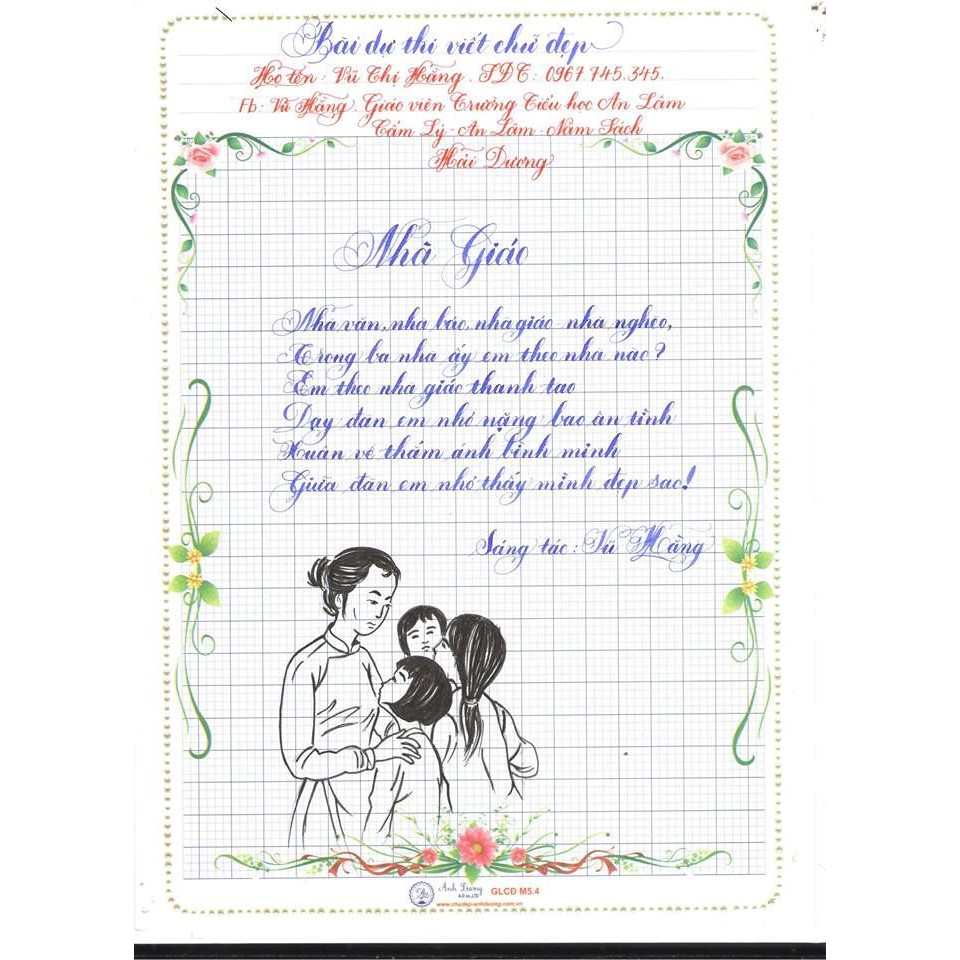 Bài dự thi viết chữ đẹp
Họ tên: Vũ Thị Hằng. SĐT: 0967.745.345.
Fb: Vũ Hằng. Giáo viên Trường Tiểu học An Lâm
Cẩm Lý - An Lâm - Nam Sách
Hải Dương
Nhà Giáo
Nhà văn, nhà báo, nhà giáo nhà nghèo,
Trong ba nhà ấy em theo nhà nào?
Em theo nhà giáo thanh tao
Dạy đàn em nhỏ nặng bao ân tình
Xuân về thắm ánh bình minh
Giữa đàn em nhỏ thấy mình đẹp sao!
Sáng tác: Vũ Hằng
Ánh Dương
GLCĐ M5.4
www.chudep-anhduong.com.vn